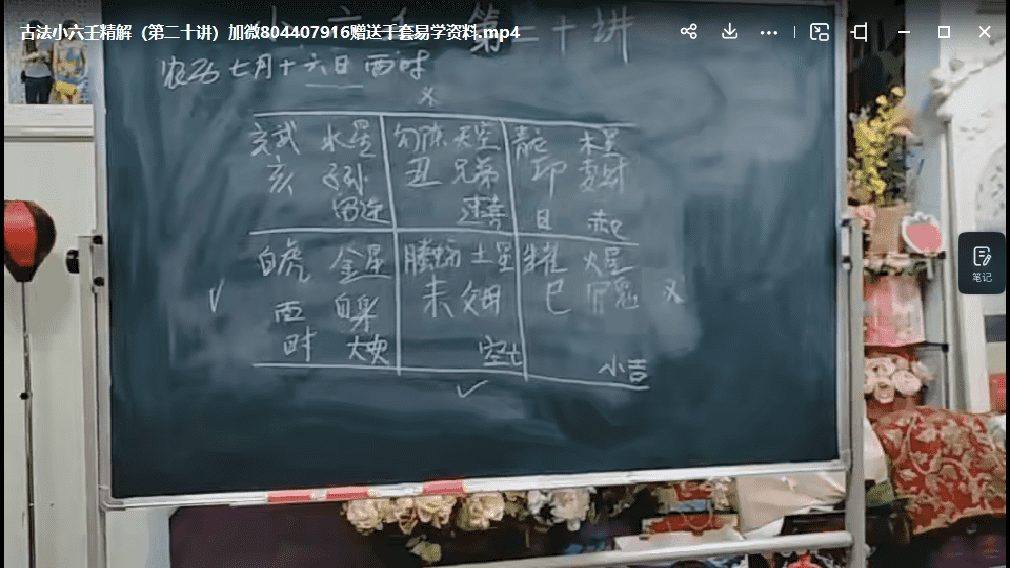 古法小六壬精解（第二十讲）加微804407916赠送手套易学资料.mp4
小六壬第二十讲
农历七月十六日 酉时
玄武 水星 勾陈 天空 青龙 木星
亥 子孙 丑 兄弟 卯 妻财
留连 速喜 日 赤口
白虎 金星 螣蛇 土星 朱雀 火星
酉 自身 未 父母 巳 官鬼
时 大安 空亡 小吉
笔记